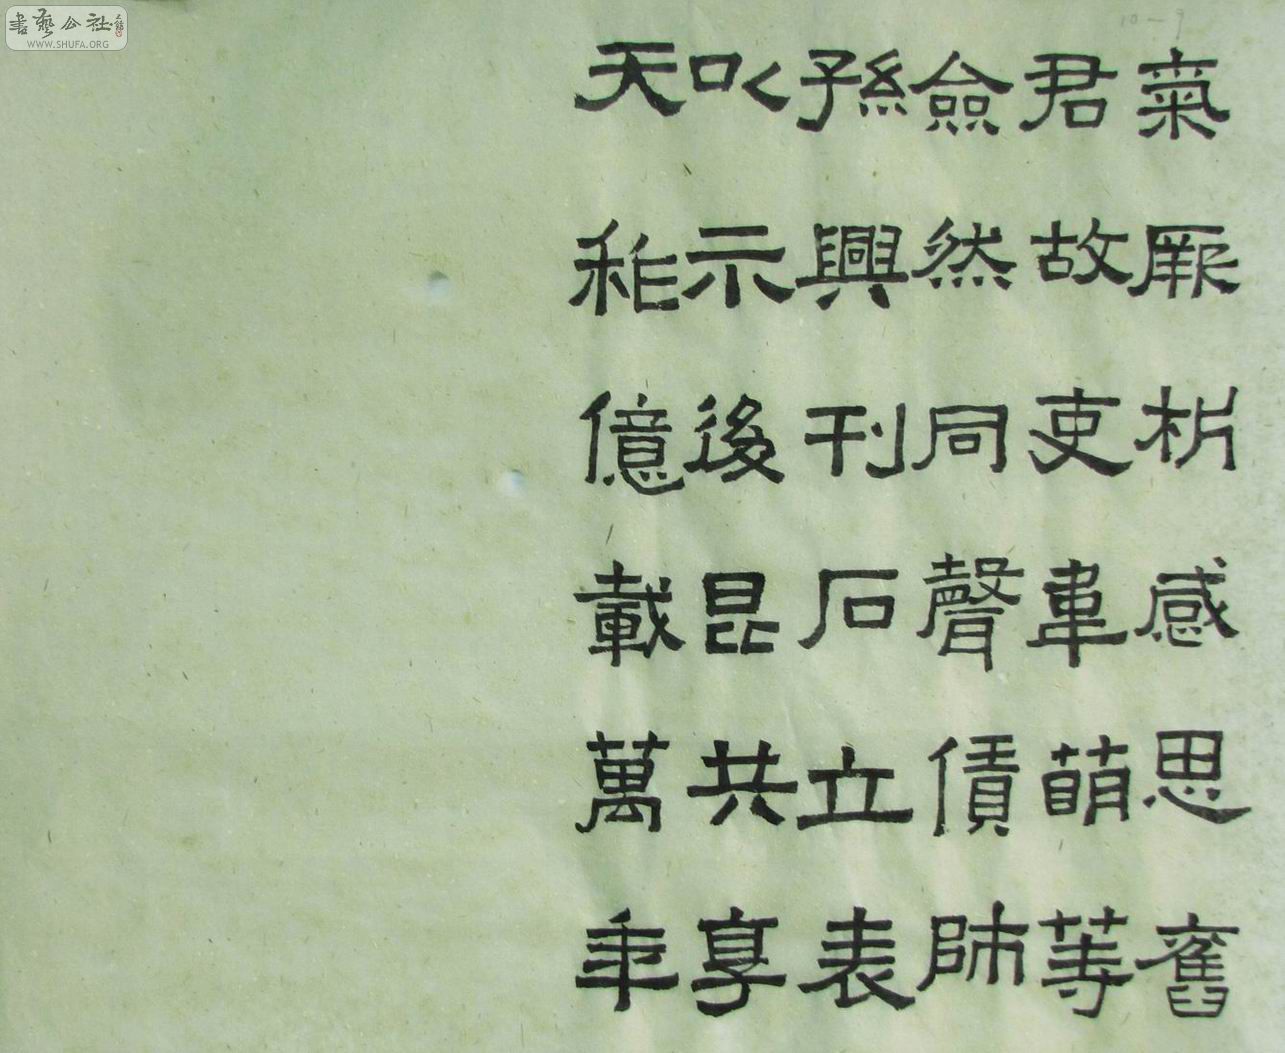 氣厥析感思舊
君故吏韋萌等
僉然同聲賃師
孫興刊石立表
以示後昆共享
天祚億載萬年
書藝公社
WWW.SHUFA.ORG
10-9